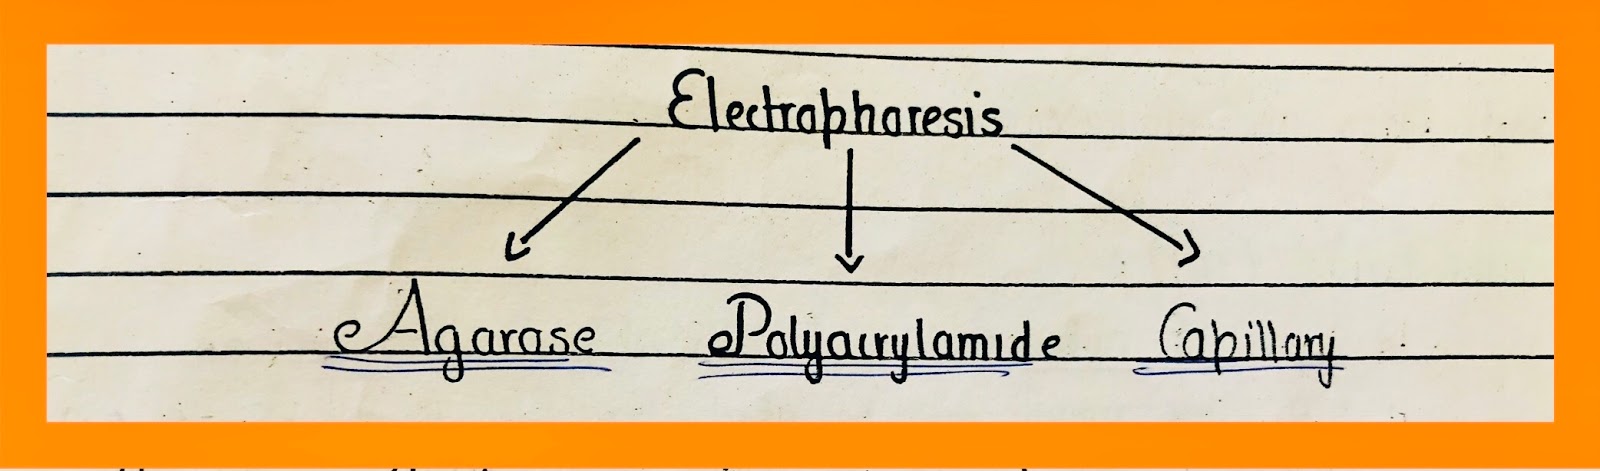 Electrophoresis
Agarose Polyacrylamide Capillary